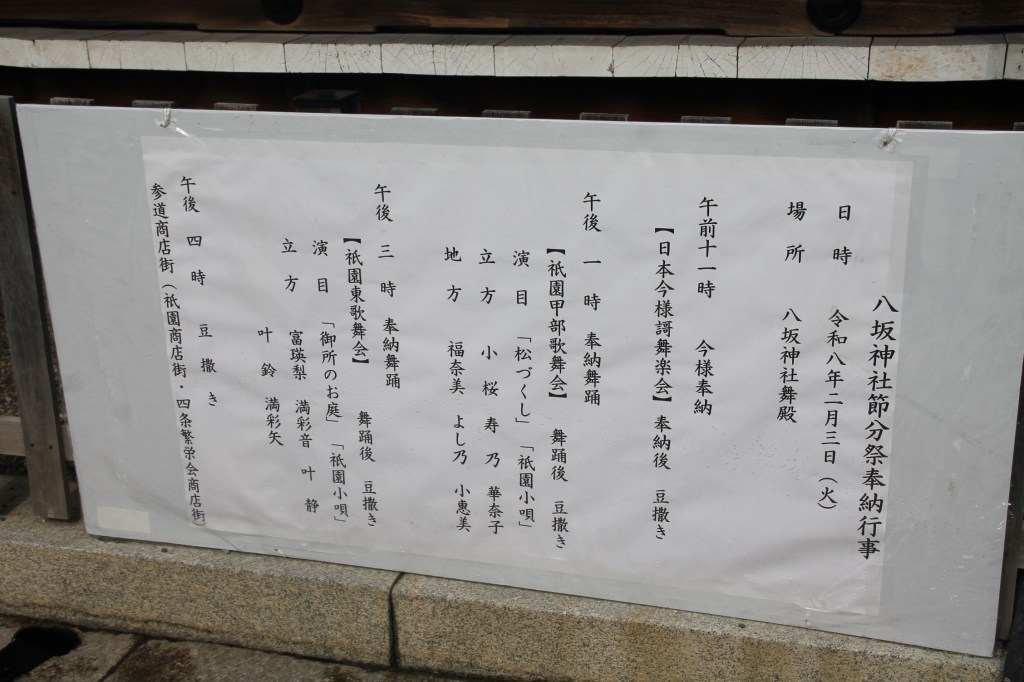 八坂神社節分祭奉納行事
日時 令和八年二月三日（火）
場所 八坂神社舞殿
午前十一時 今様奉納
【日本今様謌舞楽会】奉納後 豆撒き
午後一時 奉納舞踊
【祇園甲部歌舞会】 舞踊後 豆撒き
演目 「松づくし」 「祇園小唄」
立方 小桜 寿乃 華奈子
地方 福奈美 よし乃 小恵美
午後三時 奉納舞踊
【祇園東歌舞会】 舞踊後 豆撒き
演目 「御所のお庭」 「祇園小唄」
立方 富瑛梨 満彩音 叶静
叶鈴 満彩矢
午後四時 豆撒き
参道商店街（祇園商店街・四条繁栄会商店街）